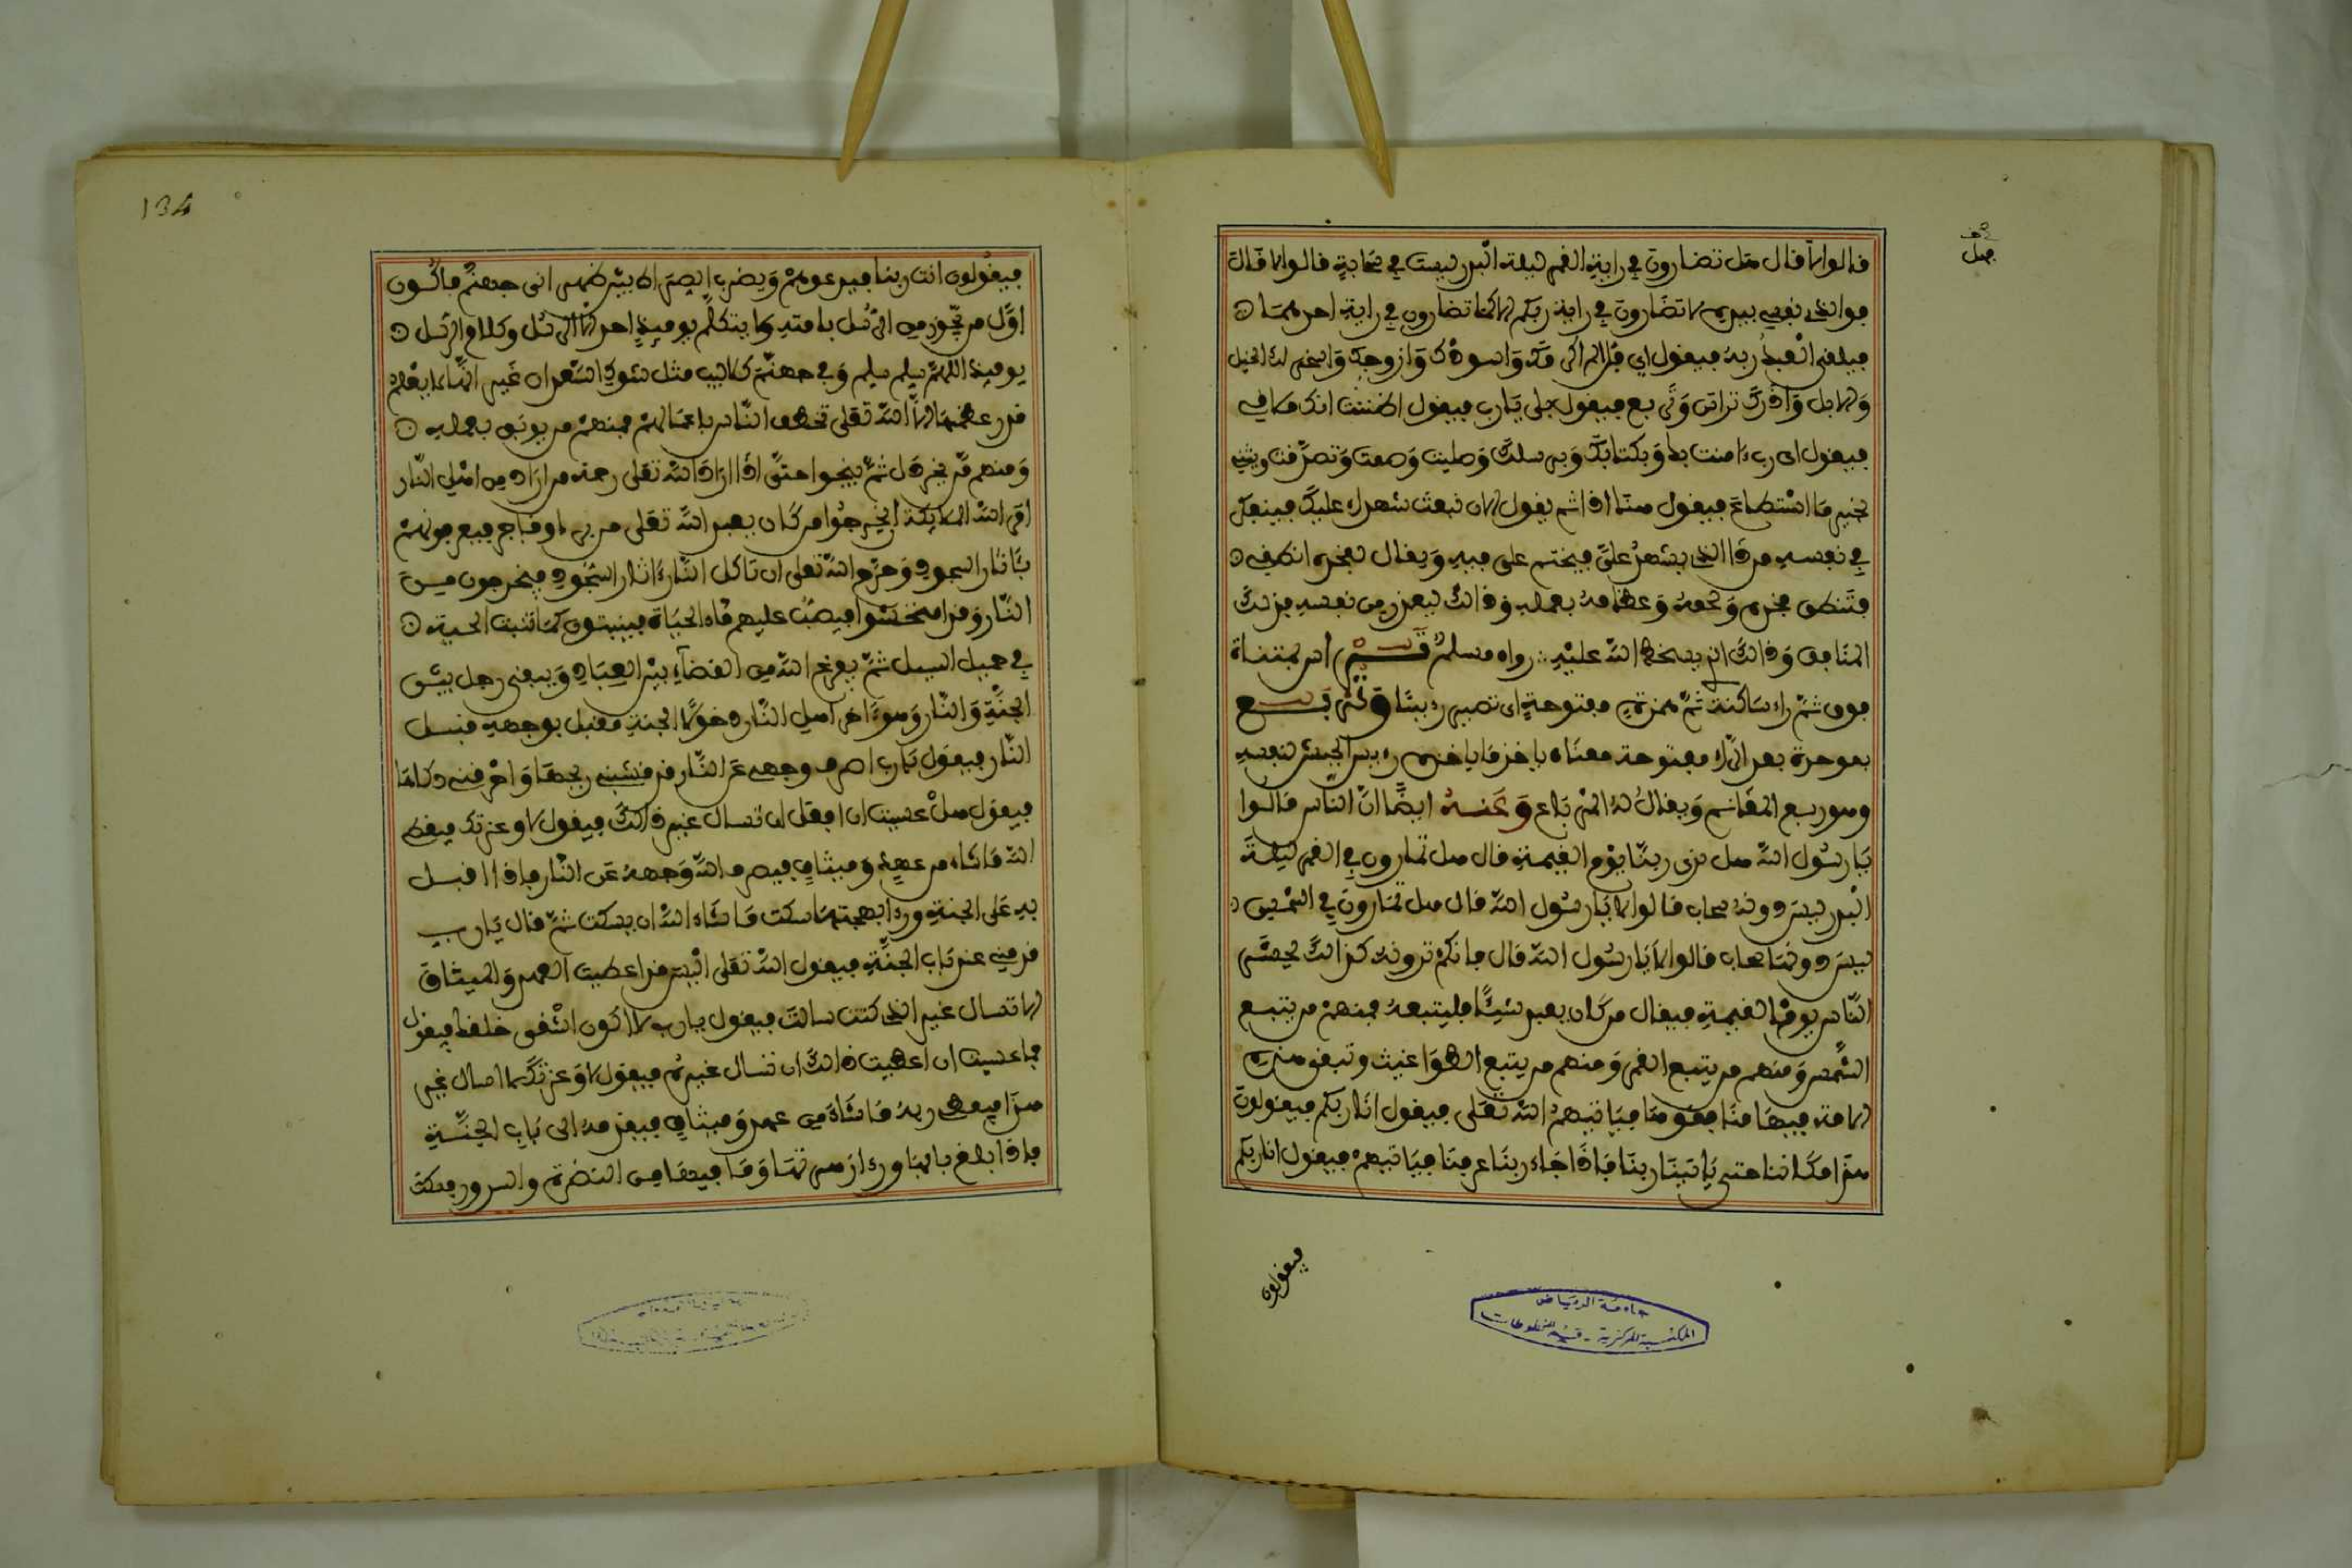 قالوا لا قال هل تضارون في رؤية القمر ليلة البدر ليست في سحابة قالوا لا قال
فوالذي نفسي بيده لا تضارون في رؤية ربكم إلا كما تضارون في رؤية أحدهما
فيلقى العبد ربه فيقول أي فل ألم أكرمك وأسودك وأزوجك وأسخر لك الخيل
والإبل وأذرك تراس وتربع فيقول بلى يا رب فيقول أظننت أنك ملاقي
فيقول أي رب ءامنت بك وبكتابك وبرسلك وصليت وصمت وتصدقت ويثني
بخير ما استطاع فيقول هنا إذا ثم يقول الان نبعث شاهدا عليك فيتفكر
في نفسه من ذا الذي يشهد علي فيختم على فيه ويقال لفخذه انطقي
فتنطق فخذه ولحمه وعظامه بعمله وذالك ليعذر من نفسه فذلك
المنافق وذالك الذي يسخط الله عليه رواه مسلم ترأس بمثناة
فوق ثم راء ساكنة ثم همزة مفتوحة أي تصير رءيسا وتربع
بموحدة بعد الراء مفتوحة معناه يأخذ ما يأخذه رءيس الجيش لنفسه
وهو ربع المغانم ويقال له المرباع وعنه أيضا أن الناس قالوا
يا رسول الله هل نرى ربنا يوم القيمة قال هل تمارون في القمر ليلة
البدر ليس دونه سحاب قالوا لا يا رسول الله قال هل تمارون في الشمس
ليس دونها سحاب قالوا لا يا رسول الله قال فإنكم ترونه كذالك يحشر
الناس يوم القيمة فيقال من كان يعبد شيئا فليتبعه فمنهم من يتبع
الشمس ومنهم من يتبع القمر ومنهم من يتبع الطواغيت وتبقى هذه
الامة فيها منافقوها فياتيهم الله تعلى فيقول انا ربكم فيقولون
هذا مكاننا حتى ياتينا ربنا فإذا جاء ربنا عرفناه فياتيهم فيقول انا ربكم
فيقولون
جامعة الرياض
المكتبة المركزية - قسم المخطوطات
134
فيقولون انت ربنا فيدعوهم ويضرب الصراط بين ظهراني جهنم فأكون
أول من يجوز من الرسل بامته ولا يتكلم يوميذ احد إلا الرسل وكلام الرسل
يوميذ اللهم سلم سلم وفي جهنم كلاليب مثل شوك السعدان غير أنه لا يعلم
قدر عظمها إلا الله تعلى تخطف الناس باعمالهم فمنهم من يوبق بعمله
ومنهم من يخردل ثم ينجوا حتى إذا اراد الله تعلى رحمة من اراد من اهل النار
امر الله الملايكة أن يخرجوا من كان يعبد الله تعلى فيعرفونهم
بآثار السجود وحرم الله تعلى ان تاكل النار ءاثار السجود فيخرجون من
النار وقد امتحشوا فيصب عليهم ماء الحياة فينبتون كما تنبت الحبة
في حميل السيل ثم يفرغ الله من القضاء بين العباد ويبقى رجل بين
الجنة والنار وهو ءاخر اهل النار دخولا الجنة مقبل بوجهه قبل
النار فيقول يا رب اصرف وجهي عن النار قد قشبني ريحها وأحرقني ذكاءها
فيقول هل عسيت ان افعل ان تسال غير ذالك فيقول لا وعزتك فيعطي
الله ما شاء من عهد وميثاق فيصرف الله وجهه عن النار فإذا اقبل
به على الجنة ورءا بهجتها سكت ما شاء الله ان يسكت ثم قال يا رب
قدمني عند باب الجنة فيقول الله تعلى اليس قد اعطيت العهد والميثاق
الا تسال غير الذي كنت سالت فيقول يا رب لا اكون اشقى خلقك فيقول
فما عسيت ان اعطيت ذالك ان تسال غيره فيقول لا وعزتك لا اسال غير
هذا فيعطي ربه ما شاء من عهد وميثاق فيقدمه الى باب الجنة
فإذا بلغ بابها ورءا زهرتها وما فيها من النضرة والسرور فسكت